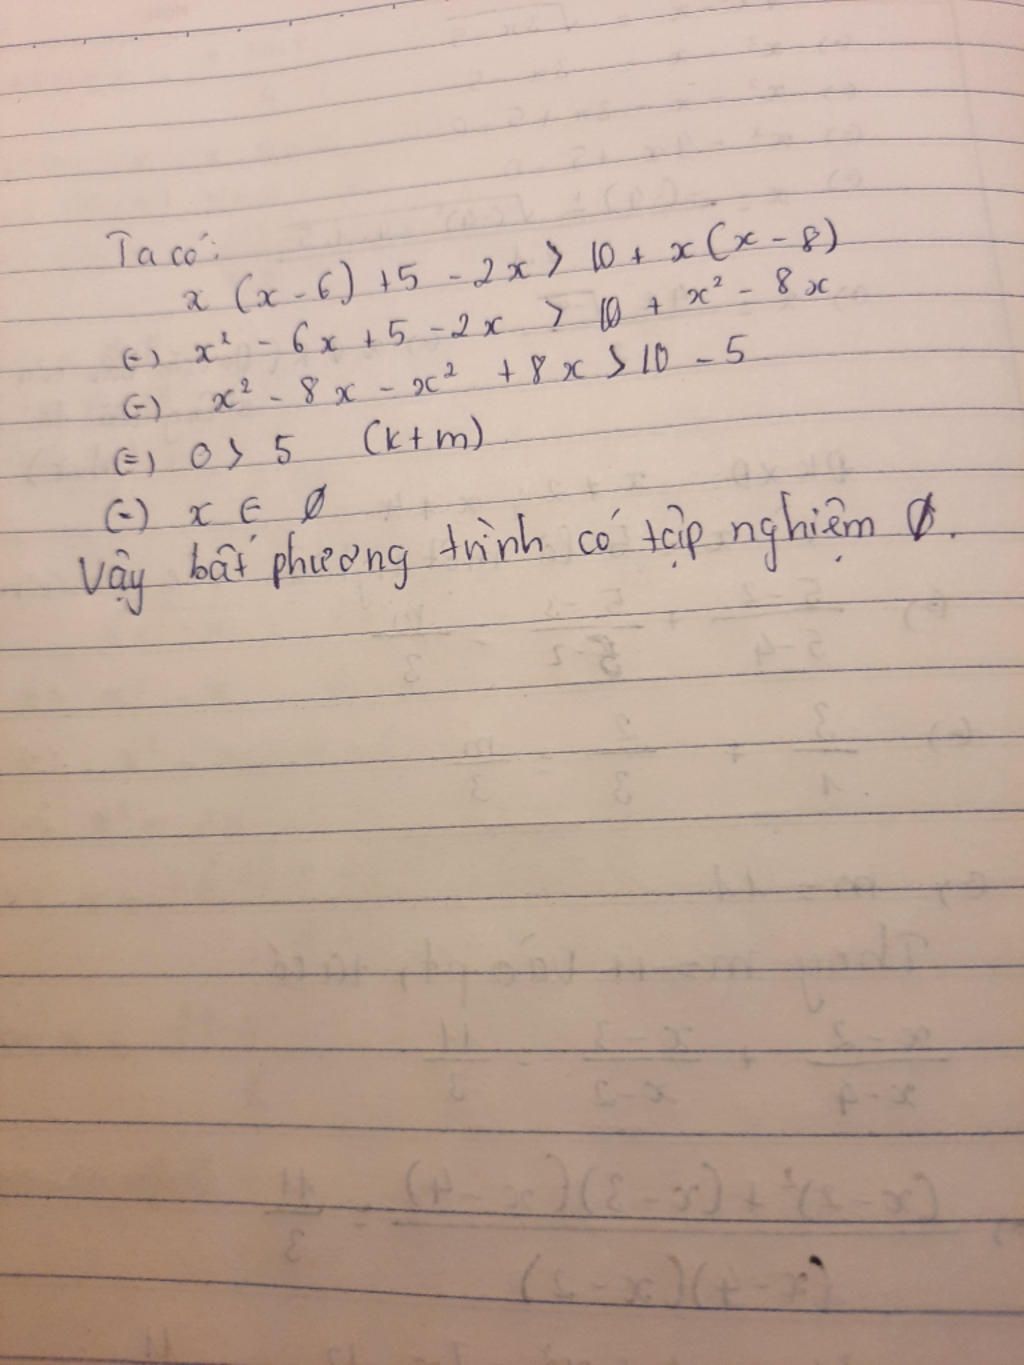 Ta có:
x (x - 6) + 5 - 2x > 10 + x (x - 8)
(=) x² - 6x + 5 - 2x > 10 + x² - 8x
(=) x² - 8x - x² + 8x > 10 - 5
(=) 0 > 5 (k+m)
(=) x ∈ ∅
Vậy bất phương trình có tập nghiệm ∅.